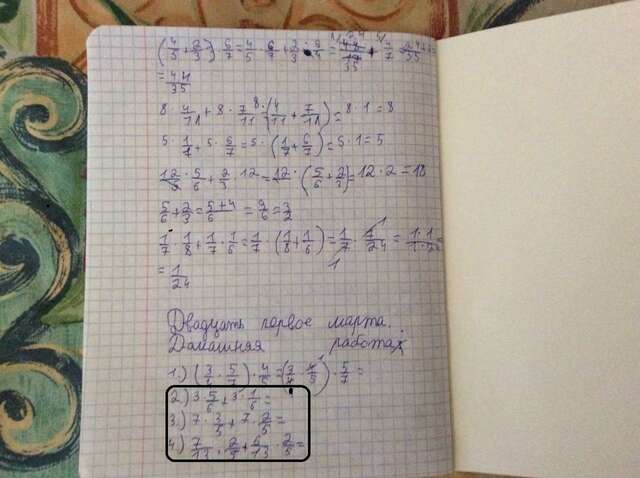 (4/5 + 2/3) · 6/7 = 4/5 · 6/7 + 2/3
= 44/35
8 · 4/11 + 8 · 7/11 = 8 · (4/11 + 7/11) = 8 · 1 = 8
5 · 1/7 + 5 · 6/7 = 5 · (1/7 + 6/7) = 5 · 1 = 5
12 · 5/6 + 2/3 · 12 = 12 · (5/6 + 2/3) = 12 · 2 = 18
5/6 + 2/3 = 5+4/6 = 9/6 = 3/2
1/7 · 1/8 + 1/7 · 1/6 = 1/7 · (1/8 + 1/6) = 1/7 · 7/24 = 1·1/1·24 =
= 1/24
Двадцать первое марта.
Домашняя работа
1.) (3/4 · 5/7) · 4/5 = (3/4 · 4/5) · 5/7 =
2.) 3 · 5/6 + 3 · 1/6 =
3.) 7 · 3/5 + 7 · 2/5 =
4.) 7/13 · 2/5 + 6/13 · 2/5 =